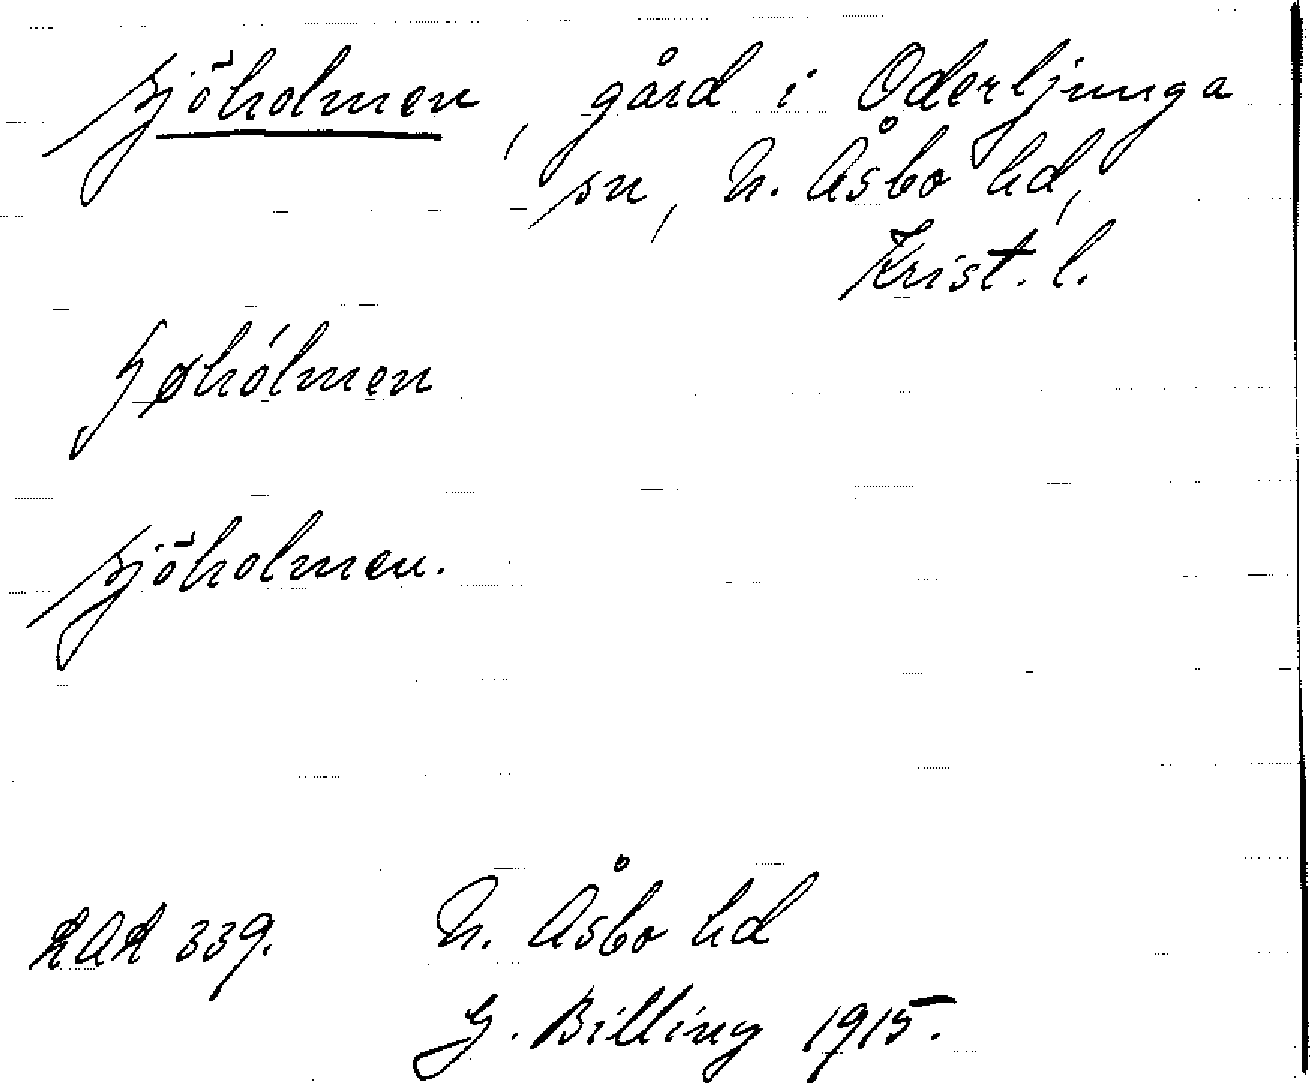 Sjöholmen, gård i Oderljunga
sn, N. Åsbo hd,
Krist. l.
Sjöholmen.
339. N. Åsbo hd
G. Billing 1915.